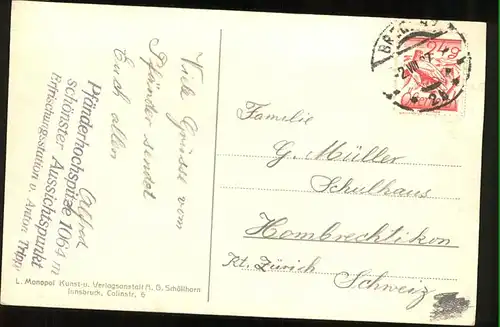 Viele Grüsse vom
Pfänder sendet
Euch allen
Alfred
Pfänderhochspitze 1064 m
schönster Aussichtspunkt
Erfrischungsstation v. Anton
L. Monopol Kunst-u. Verlagsanstalt A. G. Schöllhorn
Innsbruck, Colinstr. 6
Familie
G. Müller
Schulhaus
Hombrechtikon
Kt. Zürich
Schweiz